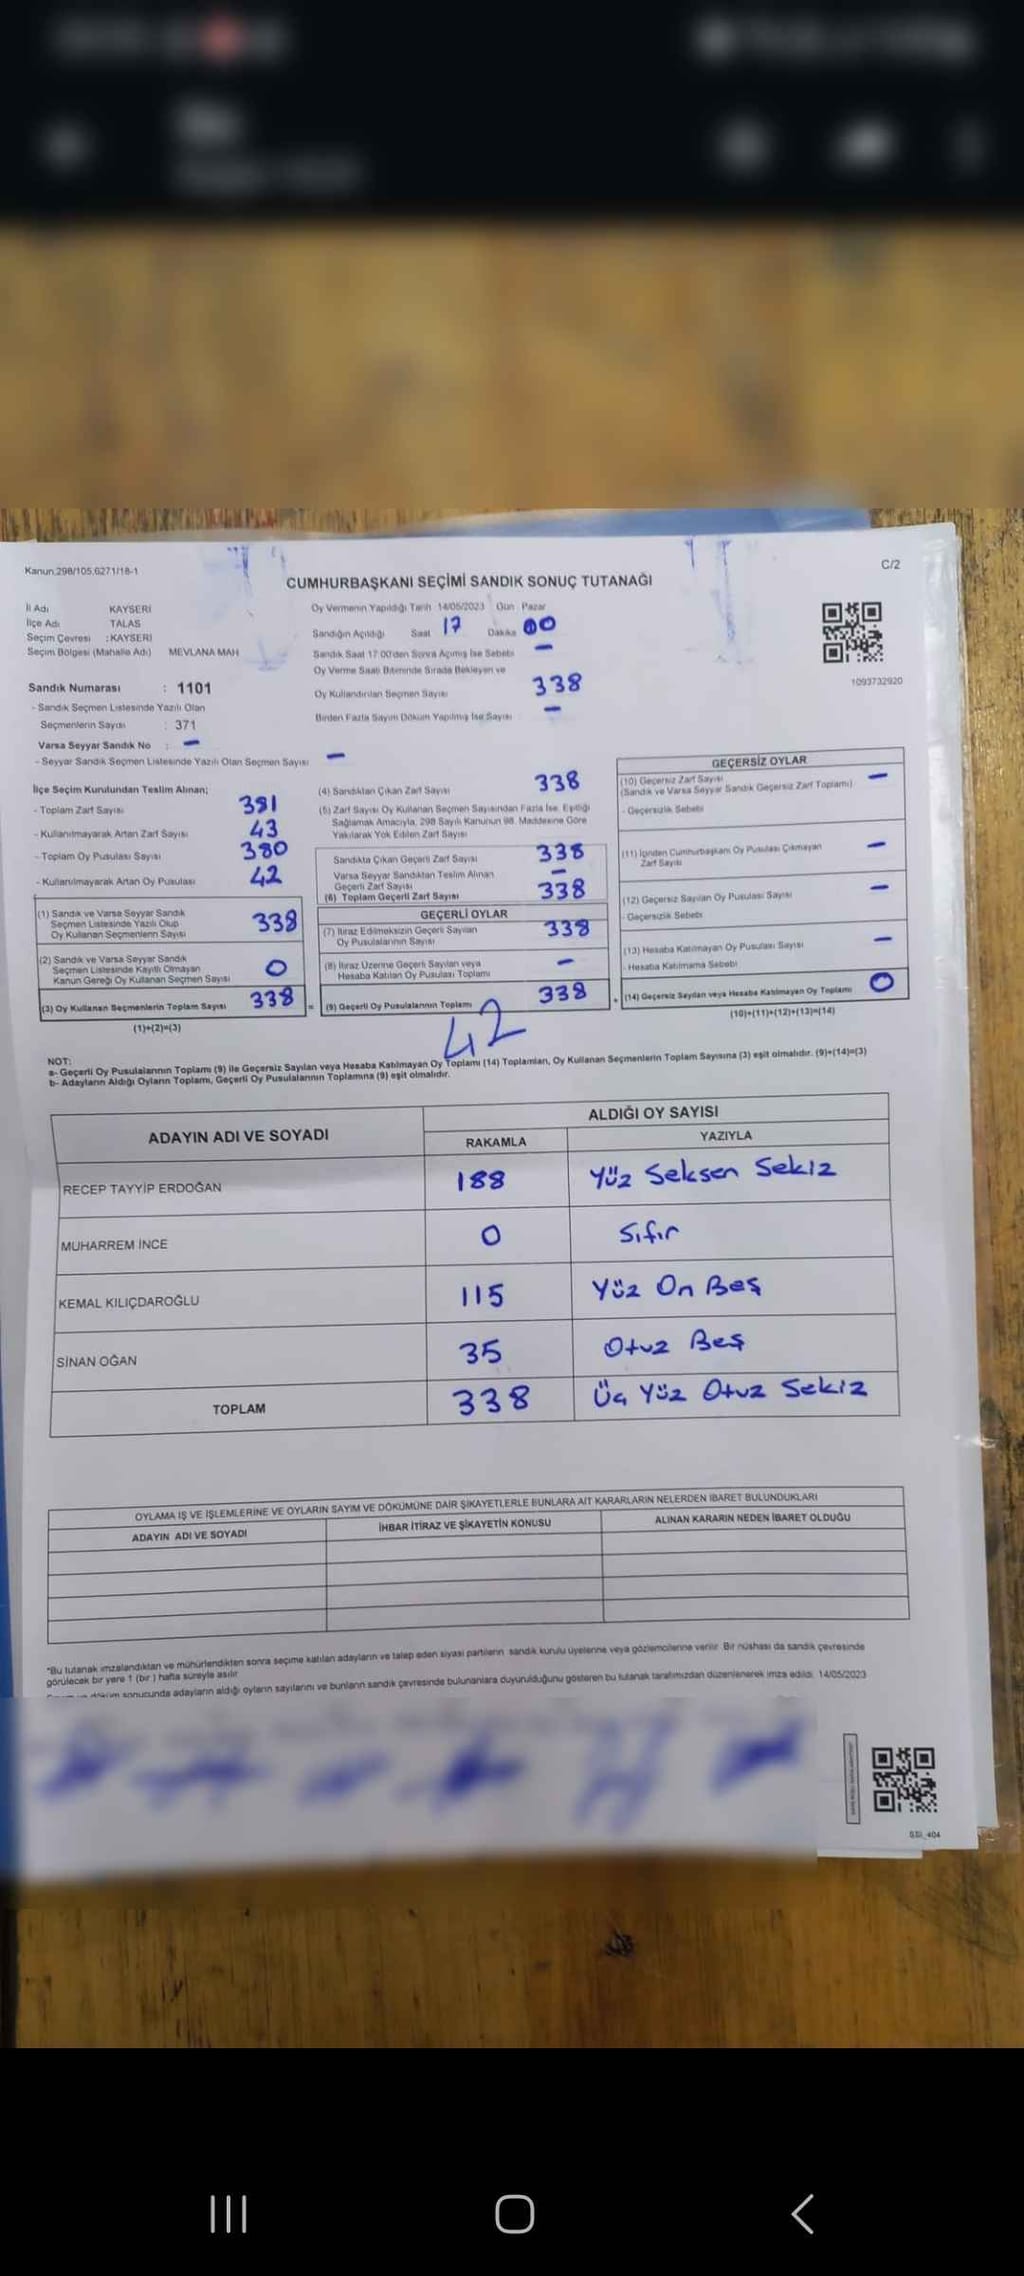 Kanun.298/105,6271/18-1
C/2
CUMHURBAŞKANI SEÇİMİ SANDIK SONUÇ TUTANAĞI
İl Adı KAYSERİ
İlçe Adı TALAS
Seçim Çevresi : KAYSERİ
Seçim Bölgesi (Mahalle Adı) MEVLANA MAH
Sandık Numarası : 1101
- Sandık Seçmen Listesinde Yazılı Olan
Seçmenlerin Sayısı : 371
Varsa Seyyar Sandık No : -
- Seyyar Sandık Seçmen Listesinde Yazılı Olan Seçmen Sayısı -
Oy Vermenin Yapıldığı Tarih 14/05/2023 Gün : Pazar
Sandığın Açıldığı Saat 17 Dakika 00
Sandık Saat 17.00'den Sonra Açmış İse Sebebi -
Oy Verme Saati Bitiminde Sırada Bekleyen ve
Oy Kullandırılan Seçmen Sayısı 338
Birden Fazla Sayım Döküm Yapılmış İse Sayısı -
1093732920
İlçe Seçim Kurulundan Teslim Alınan;
- Toplam Zarf Sayısı 381
- Kullanılmayarak Artan Zarf Sayısı 43
- Toplam Oy Pusulası Sayısı 380
- Kullanılmayarak Artan Oy Pusulası 42
(1) Sandık ve Varsa Seyyar Sandık
Seçmen Listesinde Yazılı Olup
Oy Kullanan Seçmenlerin Sayısı 338
(2) Sandık ve Varsa Seyyar Sandık
Seçmen Listesinde Kayıtlı Olmayan
Kanun Gereği Oy Kullanan Seçmen Sayısı 0
(3) Oy Kullanan Seçmenlerin Toplam Sayısı 338 =
(1)+(2)=(3)
(4) Sandıktan Çıkan Zarf Sayısı 338
(5) Zarf Sayısı Oy Kullanan Seçmen Sayısından Fazla İse, Eşitliği
Sağlamak Amacıyla, 298 Sayılı Kanunun 98. Maddesine Göre
Yakılarak Yok Edilen Zarf Sayısı
Sandıkta Çıkan Geçerli Zarf Sayısı 338
Varsa Seyyar Sandıktan Teslim Alınan
Geçerli Zarf Sayısı -
(6) Toplam Geçerli Zarf Sayısı 338
GEÇERLİ OYLAR
(7) İtiraz Edilmeksizin Geçerli Sayılan
Oy Pusulalarının Sayısı 338
(8) İtiraz Üzerine Geçerli Sayılan veya
Hesaba Katılan Oy Pusulası Toplamı -
(9) Geçerli Oy Pusulalarının Toplamı 338 +
42
GEÇERSİZ OYLAR
(10) Geçersiz Zarf Sayısı -
(Sandık ve Varsa Seyyar Sandık Geçersiz Zarf Toplamı)
- Geçersizlik Sebebi
(11) İçinden Cumhurbaşkanı Oy Pusulası Çıkmayan
Zarf Sayısı -
(12) Geçersiz Sayılan Oy Pusulası Sayısı -
- Geçersizlik Sebebi
(13) Hesaba Katılmayan Oy Pusulası Sayısı -
- Hesaba Katılmama Sebebi
(14) Geçersiz Sayılan veya Hesaba Katılmayan Oy Toplamı 0
(10)+(11)+(12)+(13)=(14)
NOT:
a- Geçerli Oy Pusulalarının Toplamı (9) ile Geçersiz Sayılan veya Hesaba Katılmayan Oy Toplamı (14) Toplamları, Oy Kullanan Seçmenlerin Toplam Sayısına (3) eşit olmalıdır. (9)+(14)=(3)
b- Adayların Aldığı Oyların Toplamı, Geçerli Oy Pusulalarının Toplamına (9) eşit olmalıdır.
ADAYIN ADI VE SOYADI
ALDIĞI OY SAYISI
RAKAMLA YAZIYLA
RECEP TAYYİP ERDOĞAN 188 Yüz Seksen Sekiz
MUHARREM İNCE 0 Sıfır
KEMAL KILIÇDAROĞLU 115 Yüz On Beş
SİNAN OĞAN 35 Otuz Beş
TOPLAM 338 Üç Yüz Otuz Sekiz
OYLAMA İŞ VE İŞLEMLERİNE VE OYLARIN SAYIM VE DÖKÜMÜNE DAİR ŞİKAYETLERLE BUNLARA AİT KARARLARIN NELERDEN İBARET BULUNDUKLARI
ADAYIN ADI VE SOYADI İHBAR İTİRAZ VE ŞİKAYETİN KONUSU ALINAN KARARIN NEDEN İBARET OLDUĞU
*Bu tutanak imzalandıktan ve mühürlendikten sonra seçime katılan adayların ve talep eden siyasi partilerin sandık kurulu üyelerine veya gözlemcilerine verilir. Bir nüshası da sandık çevresinde
görülecek bir yere 1 (bir) hafta süreyle asılır
döküm sonucunda adayların aldığı oyların sayılarını ve bunların sandık çevresinde bulunanlara duyurulduğunu gösteren bu tutanak tarafımızdan düzenlenerek imza edildi. 14/05/2023
SSI_404